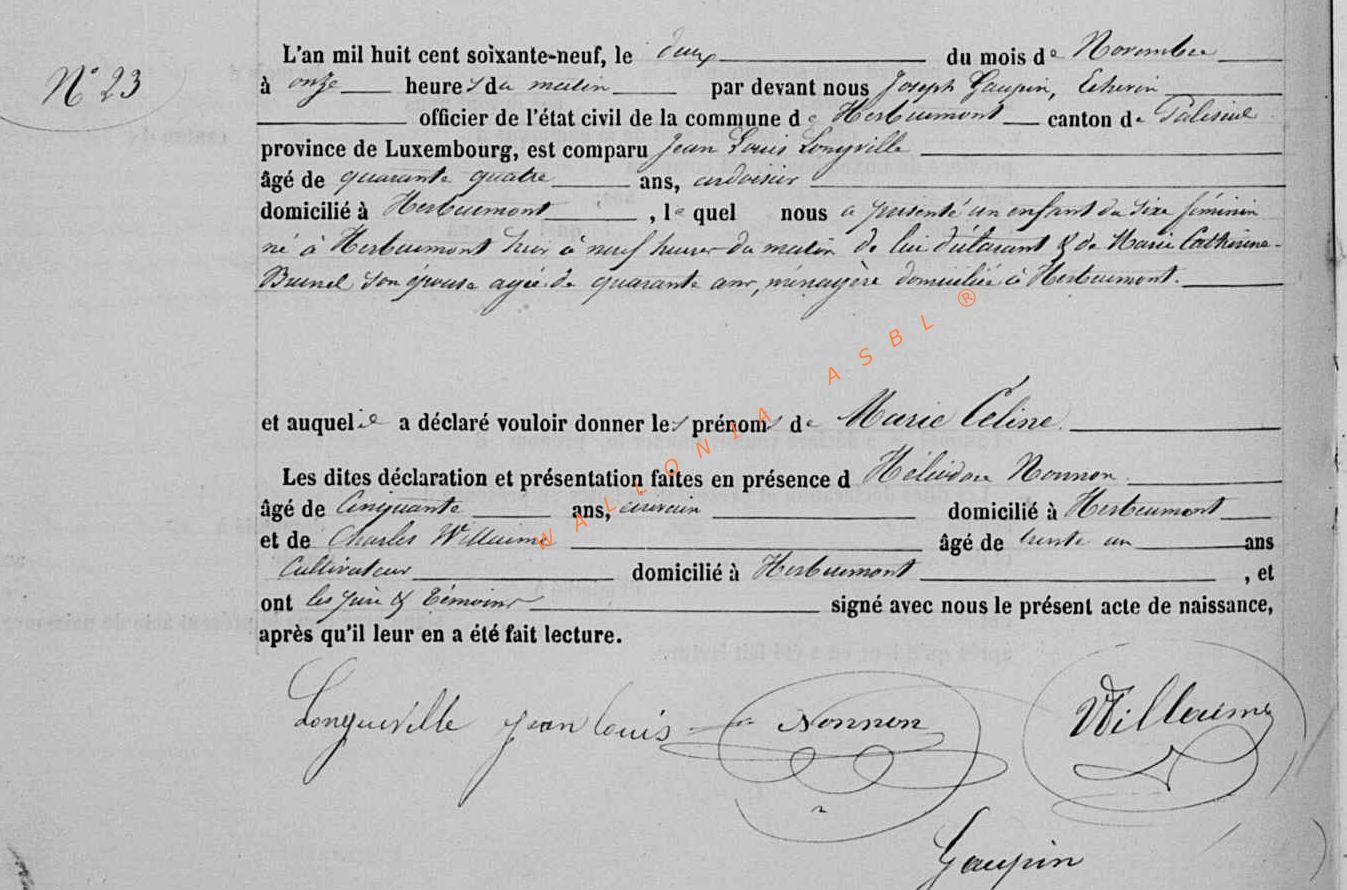 N° 23
L'an mil huit cent soixante-neuf, le deux du mois de Novembre
à onze heures du matin par devant nous Joseph Gaupin, Echevin
officier de l'état civil de la commune de Herbeumont canton de Paliseul
province de Luxembourg, est comparu Jean Louis Longville
âgé de quarante quatre ans, ardoisier
domicilié à Herbeumont, le quel nous a présenté un enfant du sexe féminin
né à Herbeumont hier à neuf heures du matin de lui déclarant & de Marie Catherine
Brunel son épouse agée de quarante ans, ménagère domiciliée à Herbeumont.
et auquel il a déclaré vouloir donner les prénoms de Marie Céline
Les dites déclaration et présentation faites en présence d Héliodore Nonnon
âgé de Cinquante ans, domicilié à Herbeumont
et de Charles Willaime âgé de trente un ans
Cultivateur domicilié à Herbeumont, et
ont les père & témoins signé avec nous le présent acte de naissance,
après qu'il leur en a été fait lecture.
Longueville Jean Louis Nonnon Willaime
Gaupin
WALLONIA ASBL ®